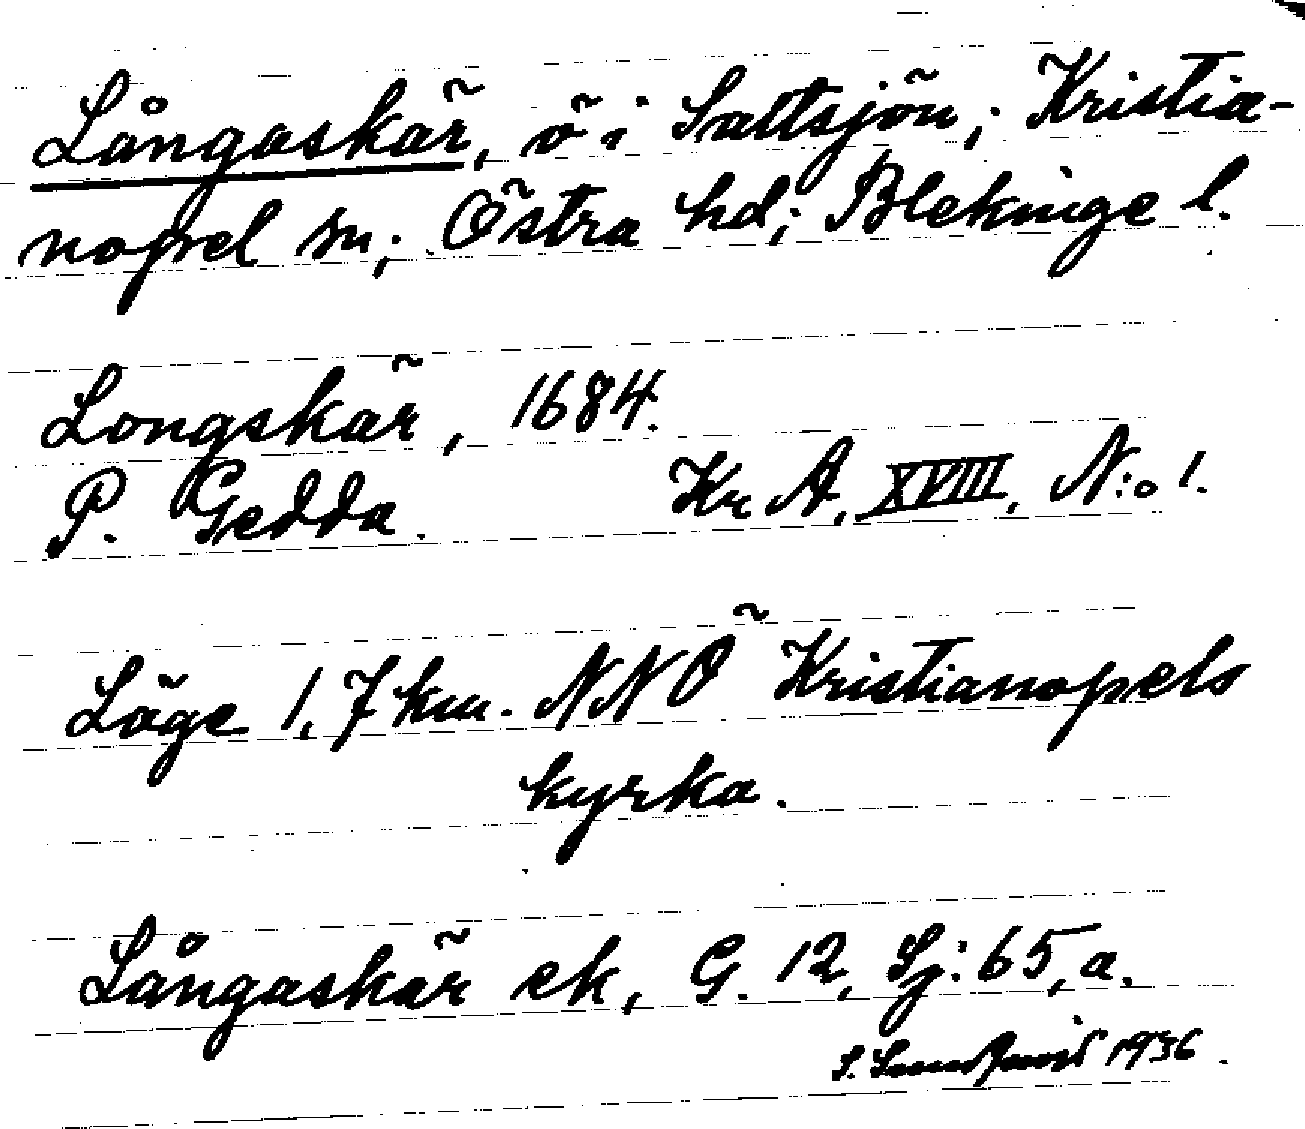 Långaskär, ö i Saltsjön; Kristia-
nopel sn; Östra hd; Blekinge l.
Longskär, 1684.
P. Gedda. Kr A, XVIII, N:o 1.
Läge 1,7 km. NNÖ Kristianopels
kyrka.
Långaskär ek, G. 12, Sj: 65, a.
S. 1936.